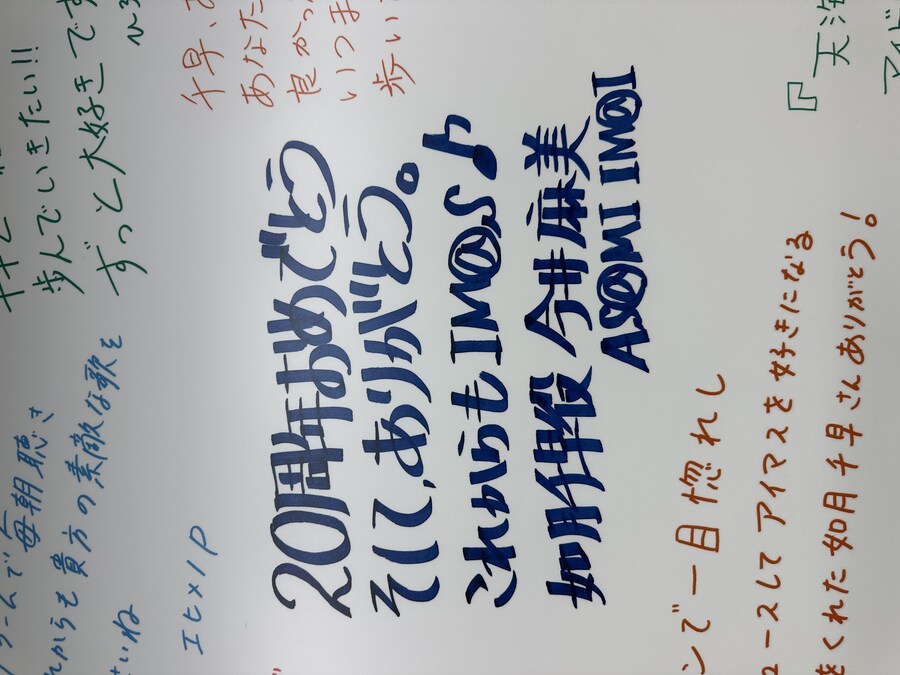 20周年おめでとう
そして、ありがとう。
これからもIM@S♪
如月千早役 今井麻美
AS@MI IM@I
千早、
あなた
良かっ
いつま
歩い
歩んでいきたい!!
ずっと大好きです
で毎朝聴き
からも貴方の素敵な歌を
さいね
エヒメノP
ンで一目惚れし
ュースしてアイマスを好きになる
をくれた如月千早さんありがとう!
『天海
アイド